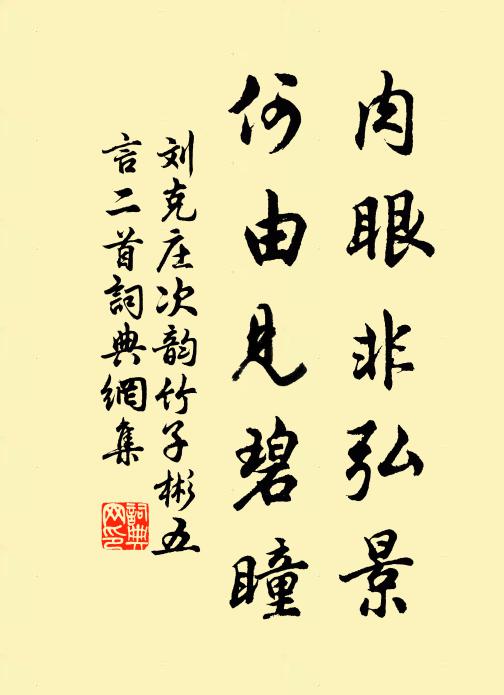 肉眼非弘景
何由见碧瞳
刘克庄次韵竹子彬五
言二首詞典網集
詞典
网印